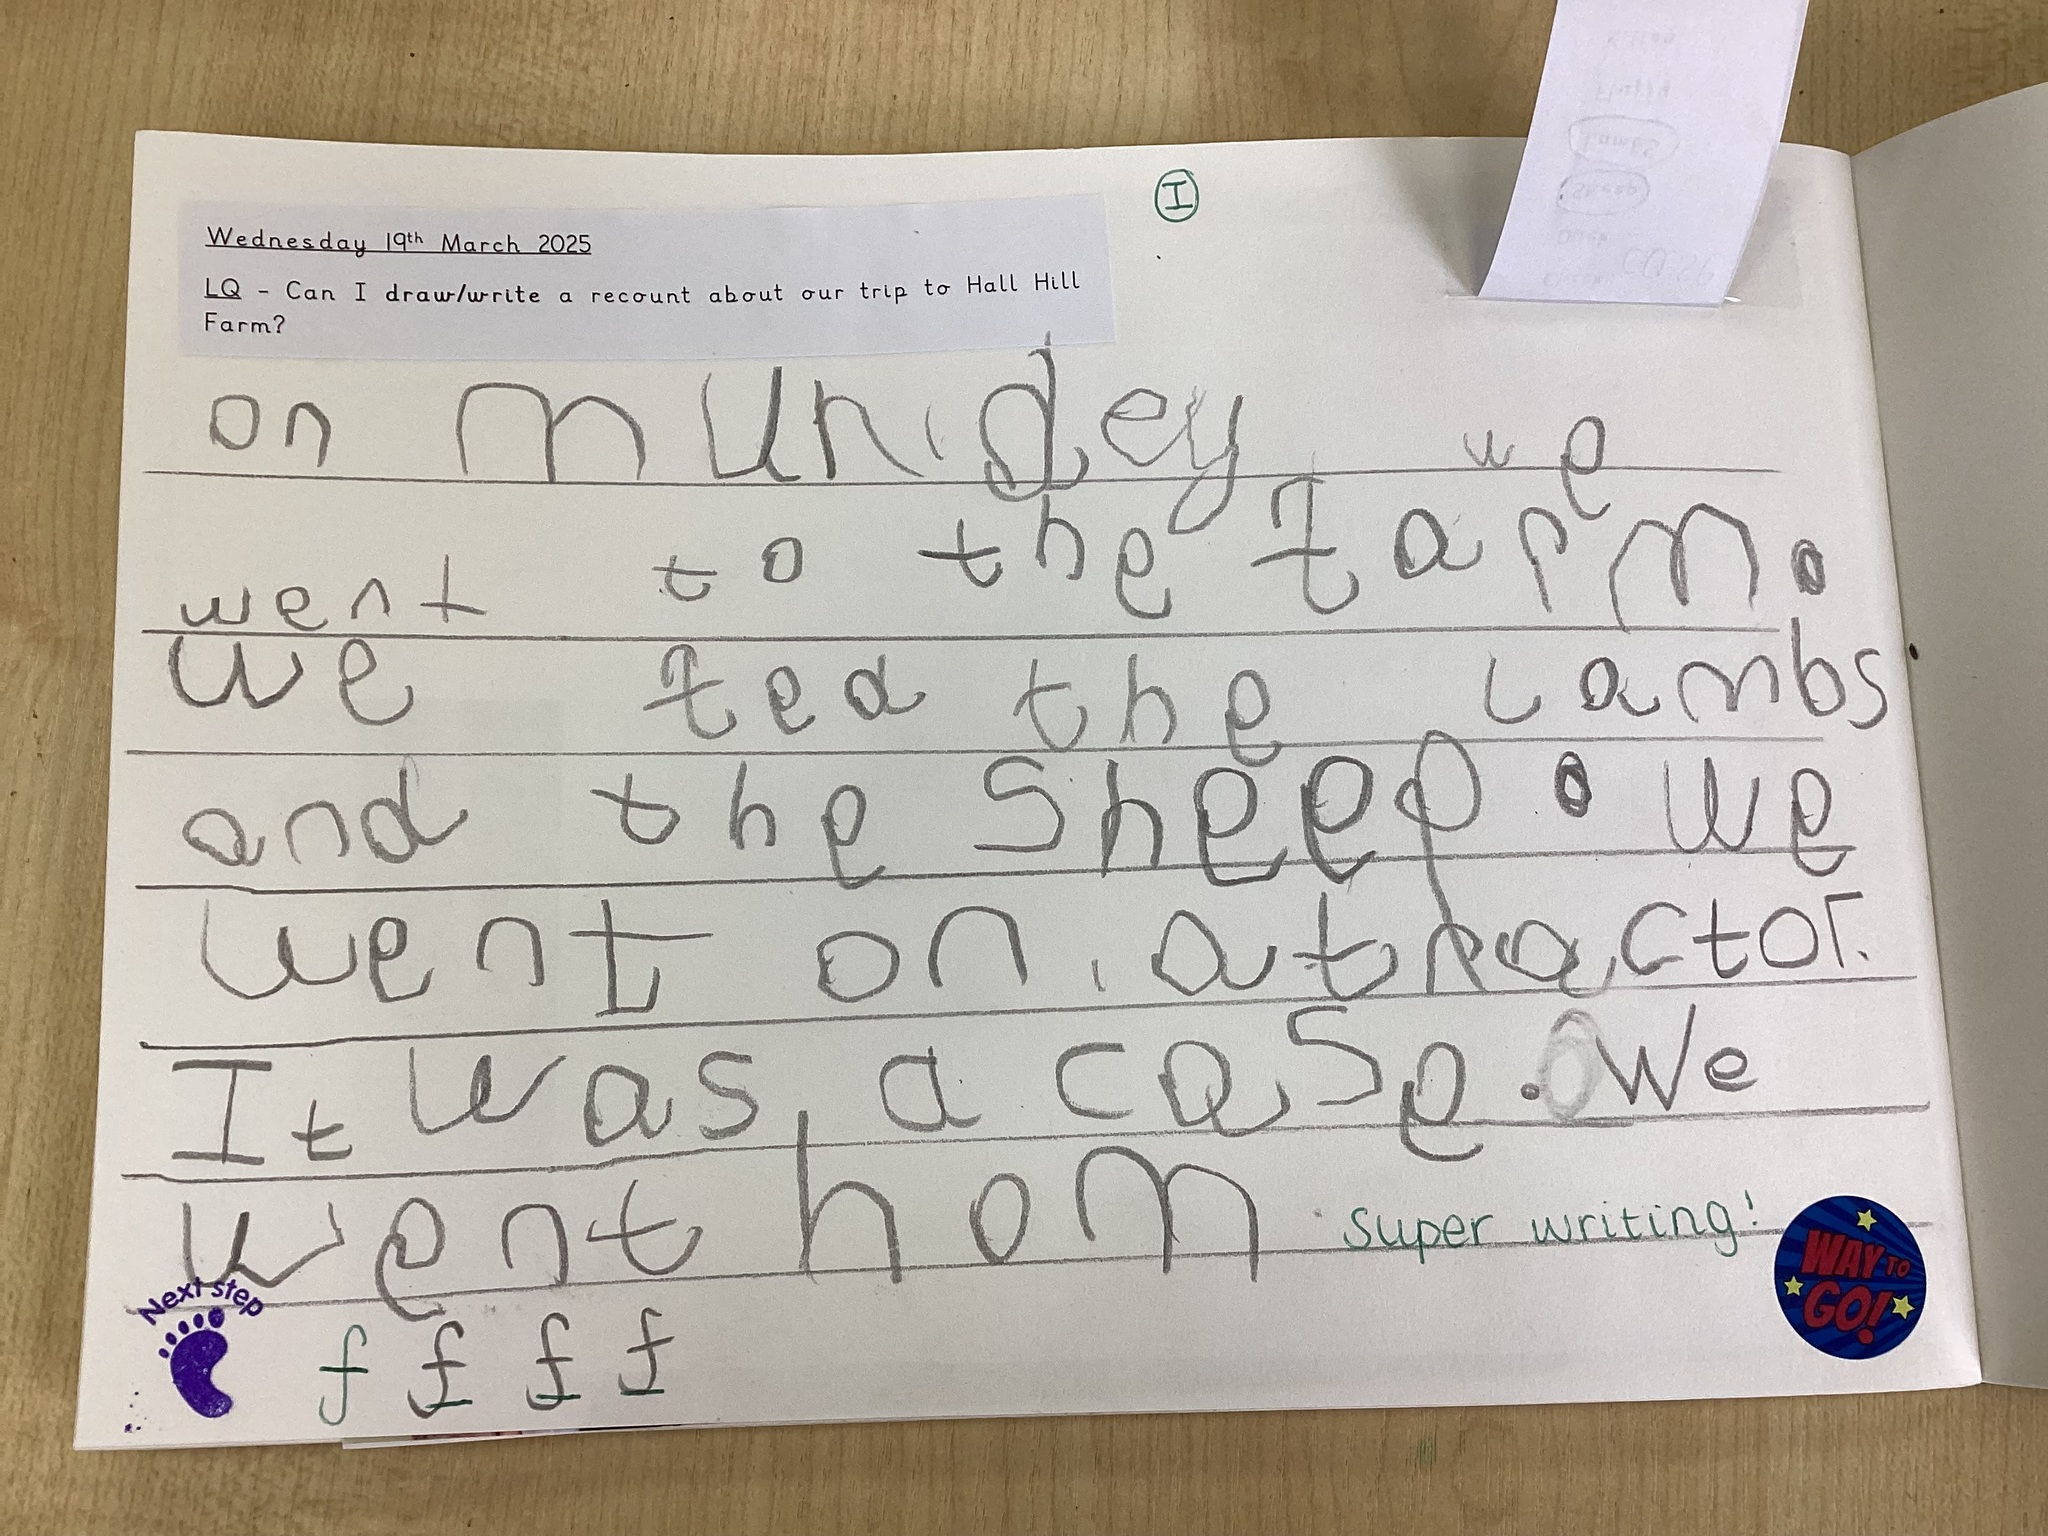 Wednesday 19th March 2025
LQ - Can I draw/write a recount about our trip to Hall Hill
Farm?
I
on mundey we
went to the farm.
we fed the Lambs
and the Sheep. We
went on a tractor.
It was a case. We
went hom
super writing!
WAY TO
GO!
Next step
f f f f